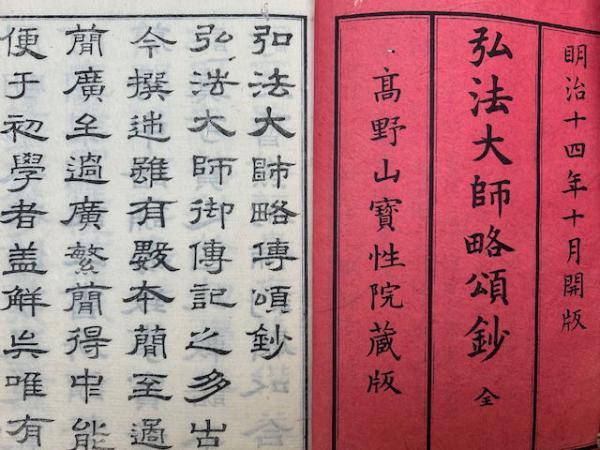 明治十四年十月開版
弘法大師略頌鈔 全
高野山寶性院蔵版
弘法大師略傳頌鈔
弘法大師御傳記之多古
今撰述雖有數夲簡至過
簡廣至過廣繁簡得中能
便于初學者盖鮮矣唯有